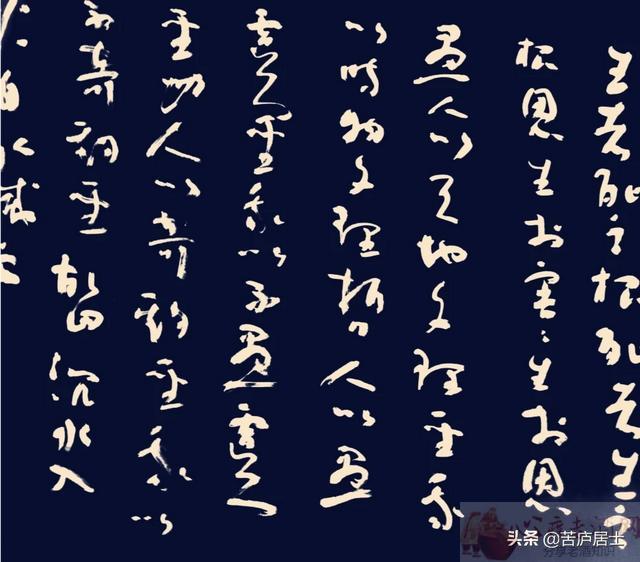 生者死之根死者生之
根恩生於害々生於恩
愚人以天地文理聖我
以時物文理哲人以愚
虞聖我以不愚虞
聖人以奇期聖我以
不奇期聖故曰沉水入
火自取滅亡
头条 @苦庐居士
分享老酒知识